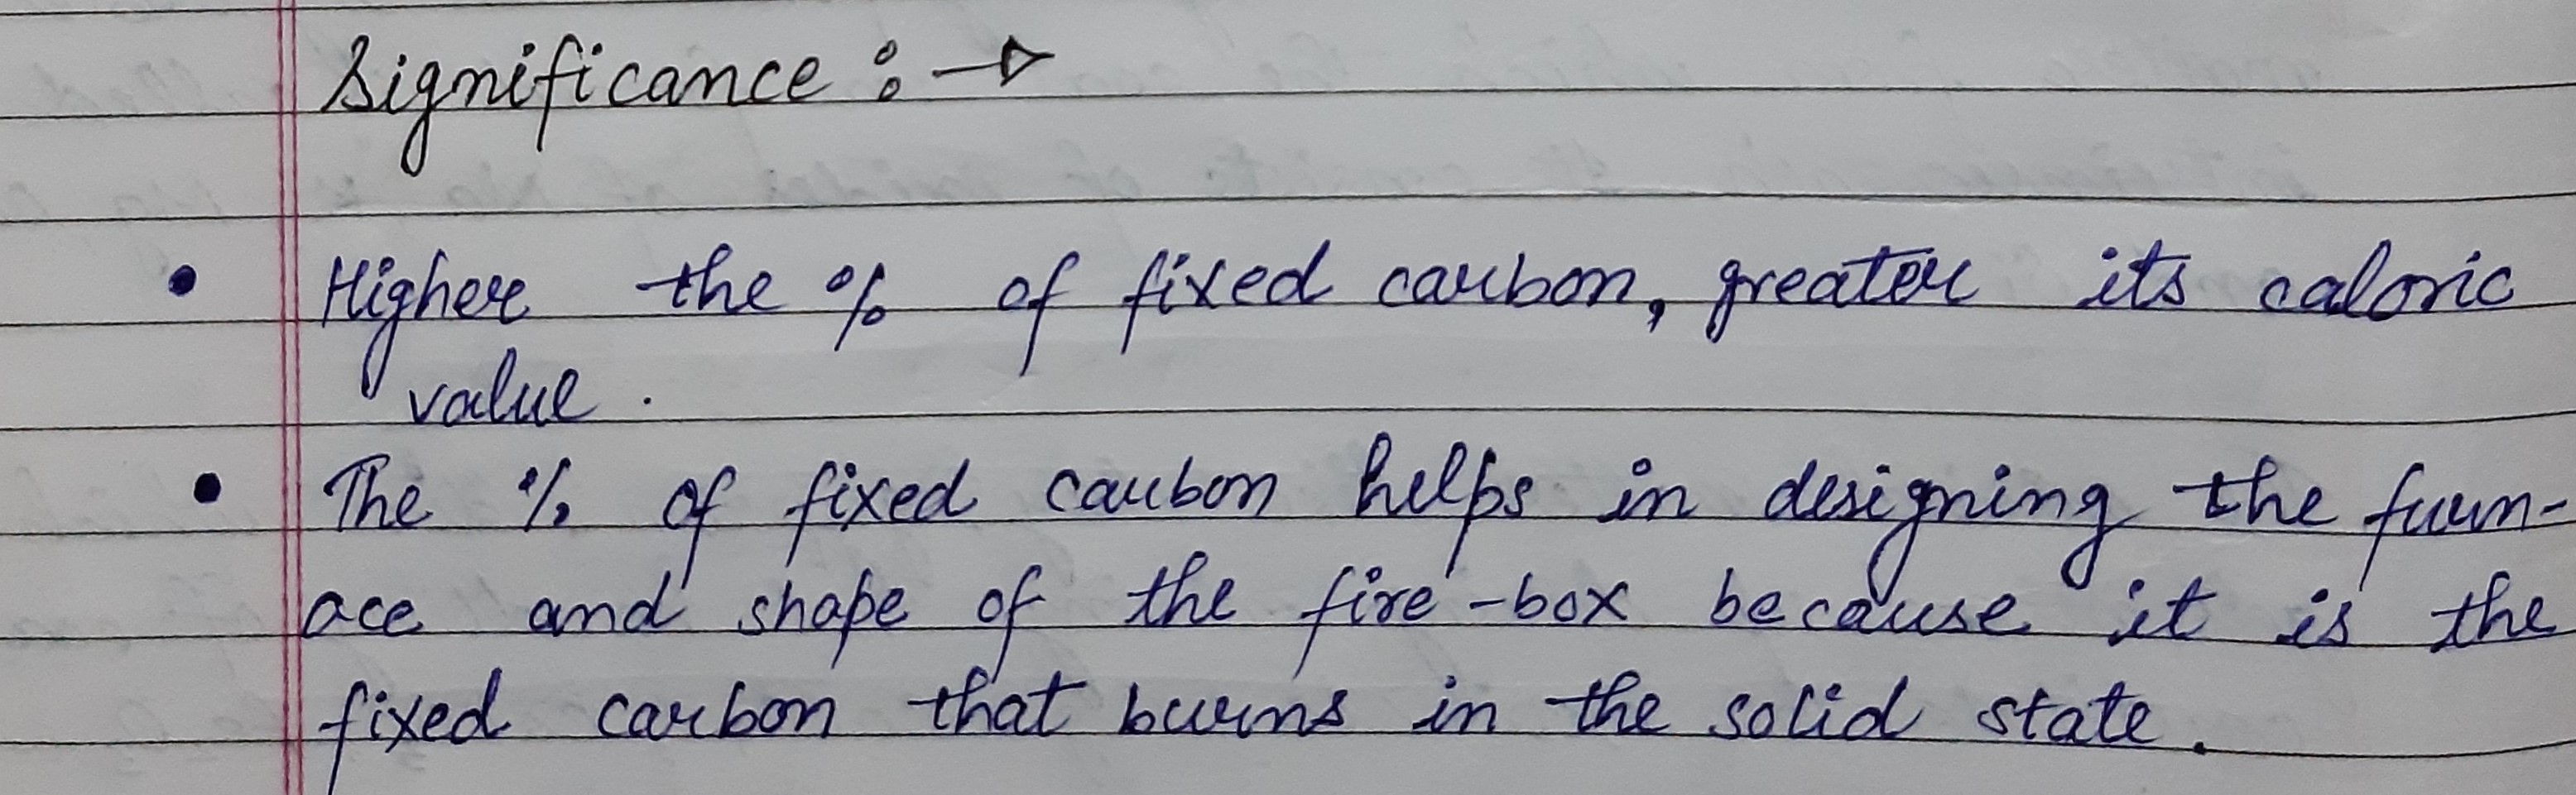 Significance :→
• Higher the % of fixed carbon, greater its caloric
value.
• The % of fixed carbon helps in designing the furn-
ace and shape of the fire-box because it is the
fixed carbon that burns in the solid state.